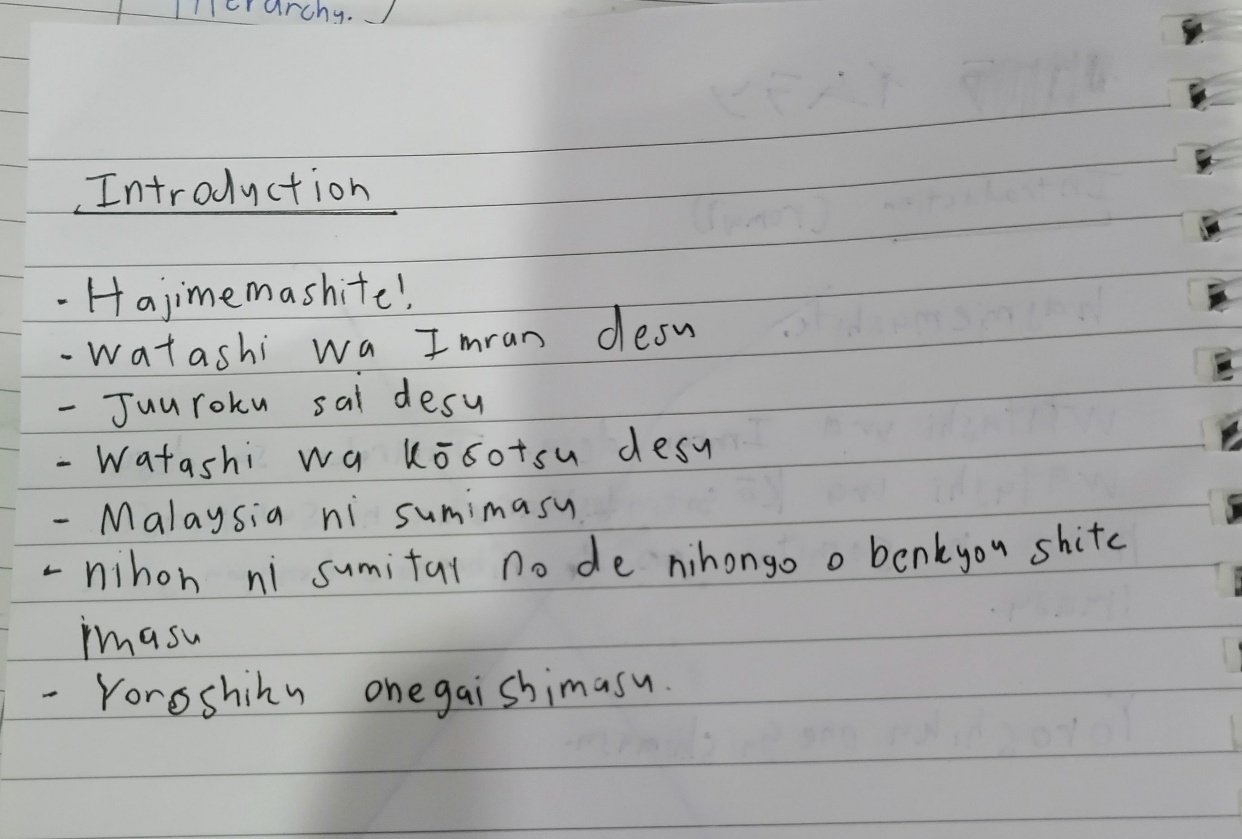 Hierarchy.
Introduction
- Hajimemashite!
- Watashi wa Imran desu
- Juuroku sai desu
- Watashi wa kōsotsu desu
- Malaysia ni sumimasu
- nihon ni sumitai no de nihongo o benkyou shite
imasu
- Yoroshiku onegai shimasu.